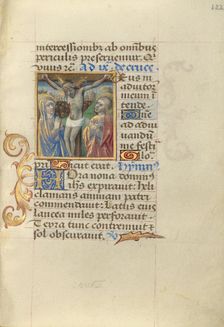 intercessionibz ab omnibus
periculis preseruemur. P
Ad ix de cruce
Eus in
adiutori
meum in
tende.
Domine
ad adiu
uandū
me festi
Glo.
sicut erat. Hymnus
Hora nona dominus
ihs expirauit: heli
clamans animam patri
commendauit: Latus eius
lancea miles perforauit
Terra tunc contremuit et
sol obscurauit.